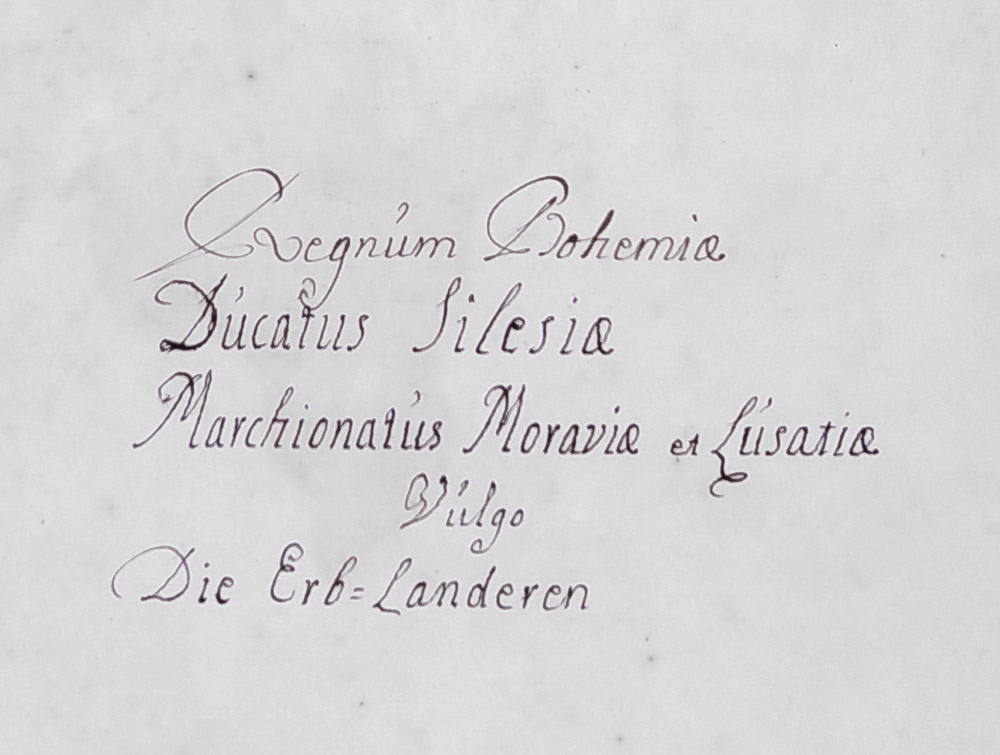 Regnúm Bohemiæ
Dúcatus Silesiæ
Marchionatús Moraviæ et Lúsatiæ
Vúlgo
Die Erb=Landeren